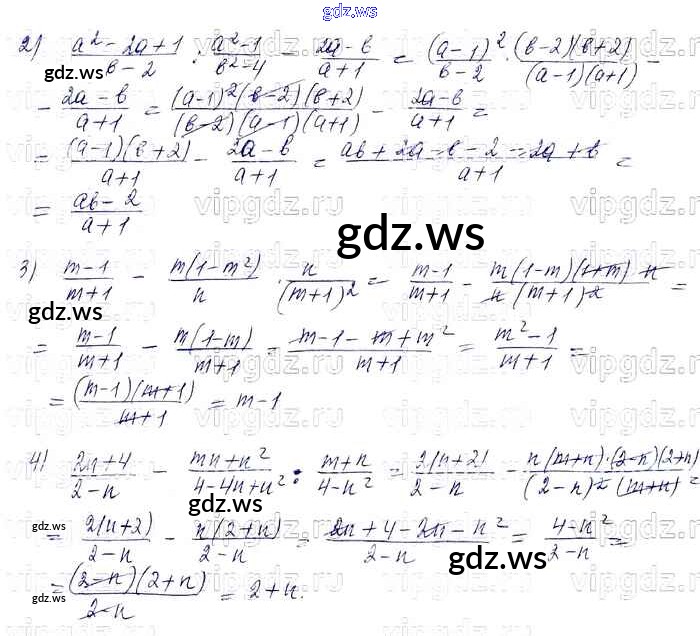 gdz.ws
2) \frac{a^2-2a+1}{b-2} : \frac{a^2-1}{b^2-4} - \frac{2a-b}{a+1} = \frac{(a-1)^2 \cdot (b-2)(b+2)}{b-2 \cdot (a-1)(a+1)} -
- \frac{2a-b}{a+1} = \frac{(a-1)^2(b-2)(b+2)}{(b-2)(a-1)(a+1)} - \frac{2a-b}{a+1} =
= \frac{(a-1)(b+2)}{a+1} - \frac{2a-b}{a+1} = \frac{ab+2a-b-2-2a+b}{a+1} =
= \frac{ab-2}{a+1}
gdz.ws
gdz.ws
3) \frac{m-1}{m+1} - \frac{m(1-m^2)}{n} \cdot \frac{n}{(m+1)^2} = \frac{m-1}{m+1} - \frac{m(1-m)(1+m) \cdot n}{n(m+1)^2} =
gdz.ws
= \frac{m-1}{m+1} - \frac{m(1-m)}{m+1} = \frac{m-1-m+m^2}{m+1} = \frac{m^2-1}{m+1} =
= \frac{(m-1)(m+1)}{m+1} = m-1
gdz.ws
4) \frac{2n+4}{2-n} - \frac{mn+n^2}{4-4n+n^2} : \frac{m+n}{4-n^2} = \frac{2(n+2)}{2-n} - \frac{n(m+n) \cdot (2-n)(2+n)}{(2-n)^2(m+n)} =
gdz.ws
= \frac{2(n+2)}{2-n} - \frac{n(2+n)}{2-n} = \frac{2n+4-2n-n^2}{2-n} = \frac{4-n^2}{2-n} =
gdz.ws
gdz.ws
= \frac{(2-n)(2+n)}{2-n} = 2+n.
gdz.ws
vipgdz.ru